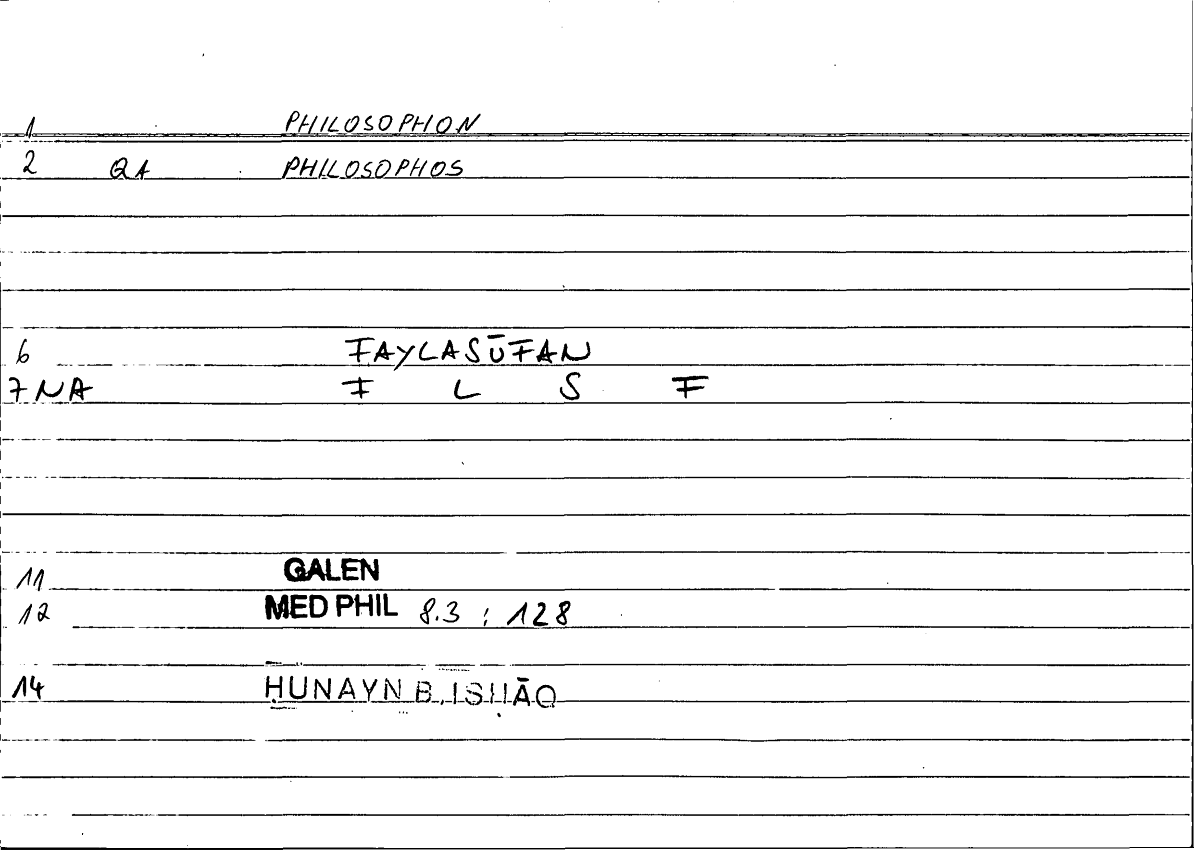 1 PHILOSOPHON
2 QA PHILOSOPHOS
6 FAYLASŪFAN
7 NA F L S F
11 GALEN
12 MED PHIL 8.3 : 128
14 ḤUNAYN B. ISḤĀQ